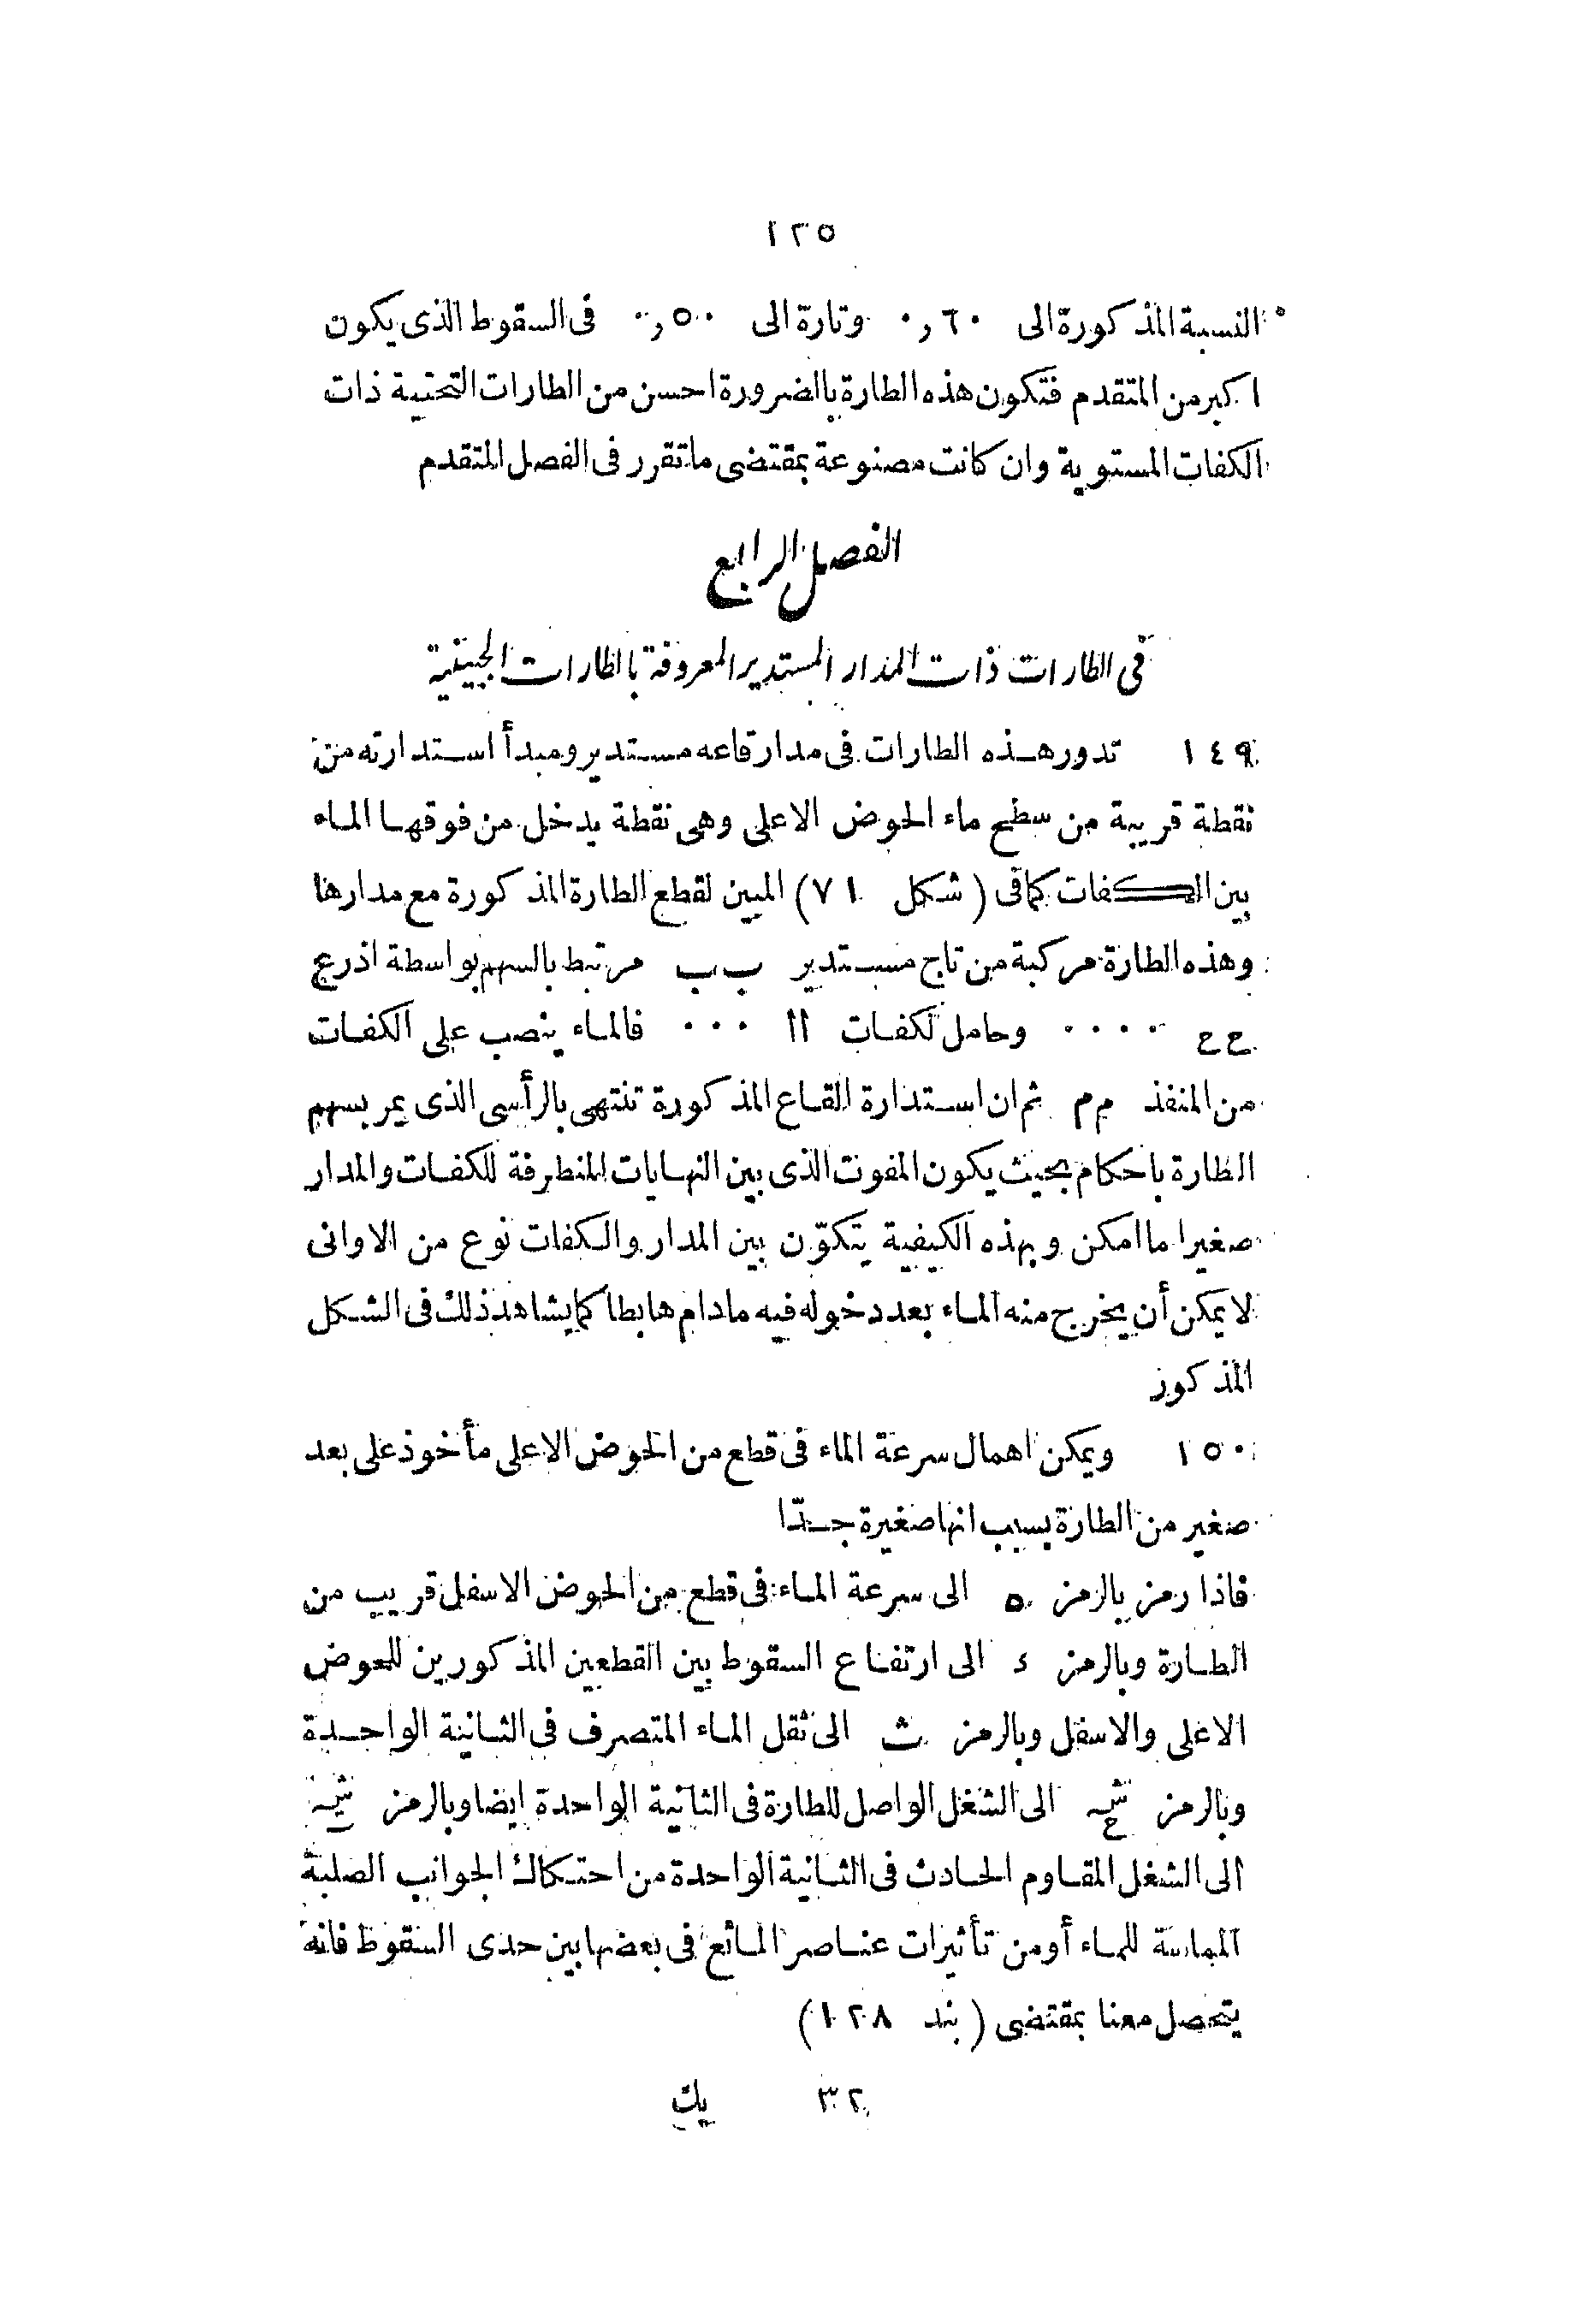 ١٢٥
النسبة المذكورة الى ٦٠ر٠ وتارة الى ٥٠ر٠ فى السقوط الذى يكون
اكبر من المتقدم فتكون هذه الطارة بالضرورة احسن من الطارات التحتية ذات
الكفات المستوية وان كانت مصنوعة بمقتضى ما تقرر فى الفصل المتقدم
الفصل الرابع
فى الطارات ذات المدار المستدير المعروفة بالطارات الجنبية
١٤٩ تدور هذه الطارات فى مدار قاعه مستدير ومبدأ استدارته من
نقطة قريبة من سطح ماء الحوض الاعلى وهى نقطة يدخل من فوقها الماء
بين الكفات كما فى (شكل ٧١) المبين لقطع الطارة المذكورة مع مدارها
وهذه الطارة مركبة من تاج مستدير ب ب مرتبط بالسهم بواسطة اذرع
ع ع ٠٠٠٠ وحامل لكفات ا ا ٠٠٠ فالماء ينصب على الكفات
من المنفذ م م ثم ان استدارة القاع المذكورة تنتهى بالرأسى الذى يمر بسهم
الطارة باحكام بحيث يكون المفوت الذى بين النهايات المتطرفة للكفات والمدار
صغيرا ما امكن وبهذه الكيفية يتكوّن بين المدار والكفات نوع من الاوانى
لا يمكن أن يخرج منه الماء بعد دخوله فيه مادام هابطا كما يشاهد ذلك فى الشكل
المذكور
١٥٠ ويمكن اهمال سرعة الماء فى قطع من الحوض الاعلى مأخوذ على بعد
صغير من الطارة بسبب انها صغيرة جدّا
فاذا رمز بالرمز ه الى سرعة الماء فى قطع من الحوض الاسفل قريب من
الطارة وبالرمز ء الى ارتفاع السقوط بين القطعين المذكورين للحوض
الاعلى والاسفل وبالرمز ث الى ثقل الماء المتصرف فى الثانية الواحدة
وبالرمز الى الشغل الواصل للطارة فى الثانية الواحدة ايضا وبالرمز
الى الشغل المقاوم الحادث فى الثانية الواحدة من احتكاك الجوانب الصلبة
المماسة للماء أو من تأثيرات عناصر المائع فى بعضها بين حدى السقوط فانه
يتحصل معنا بمقتضى (بند ١٢٨)
٣٢ يك